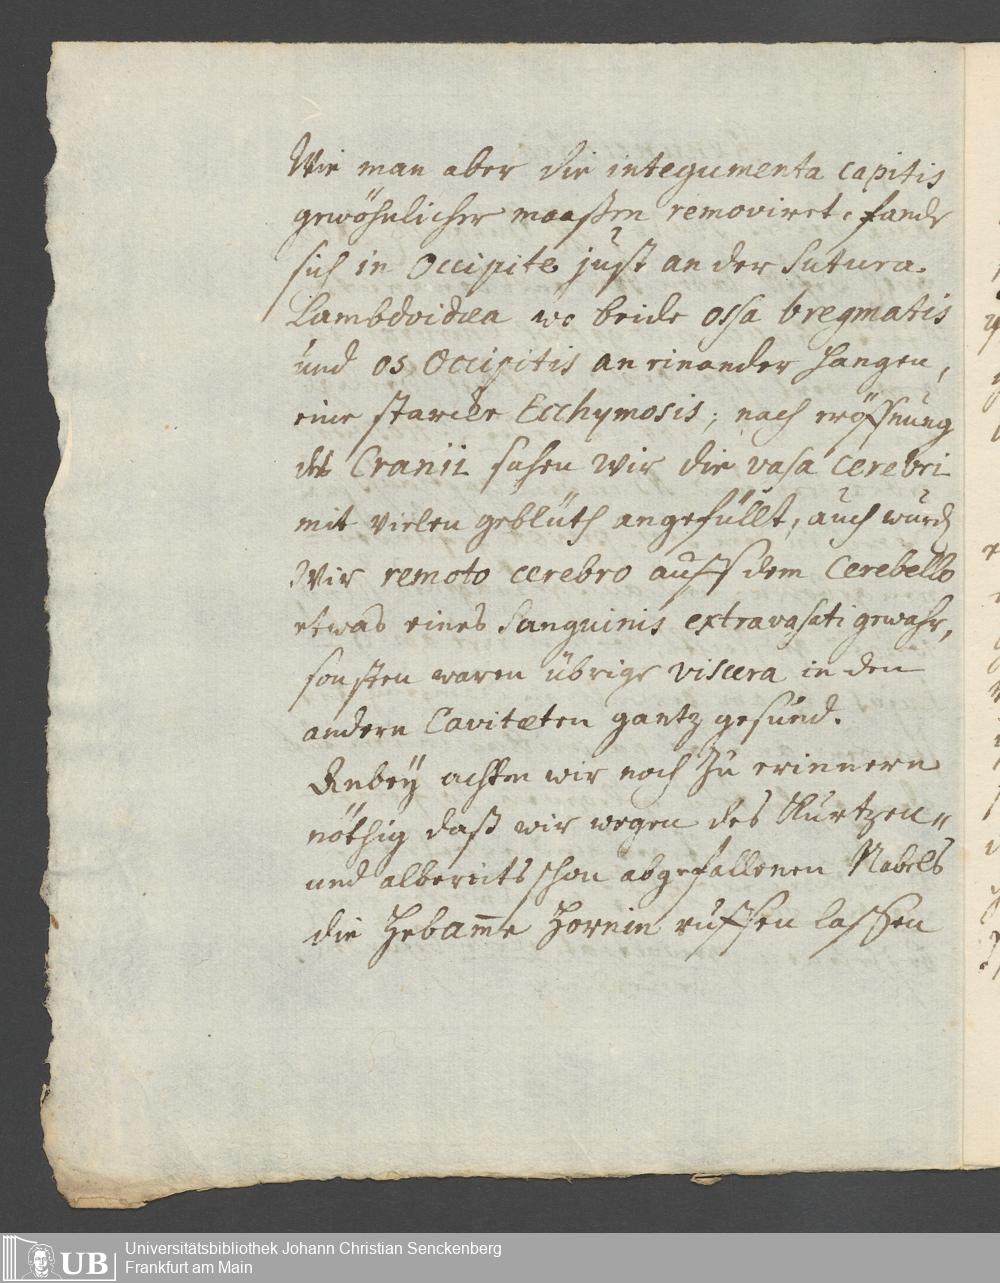 Wie man aber die integumenta capitis
gewöhnlicher maaßen removiret, fande
sich in Occipite just an der Sutura
Lambdoidæa wo beide ossa bregmatis
und os Occipitis an einander hangen,
eine starcke Ecchymosis; nach eröffnung
des Cranii sahen wir die vasa Cerebri
mit vielen geblüth angefüllt, auch wurd
Wir remoto cerebro auff dem Cerebello
etwas eines Sanguinis extravasati gewahr,
sonsten waren übrige viscera in den
andern Cavitæten gantz gesund.
Anbey achten wir noch zu erinnern
nöthig daß wir wegen des Kurtzen
und albereits schon abgefallenen Nabels
die Hebam̅e Hornin ruffen lassen
UB Universitätsbibliothek Johann Christian Senckenberg
Frankfurt am Main